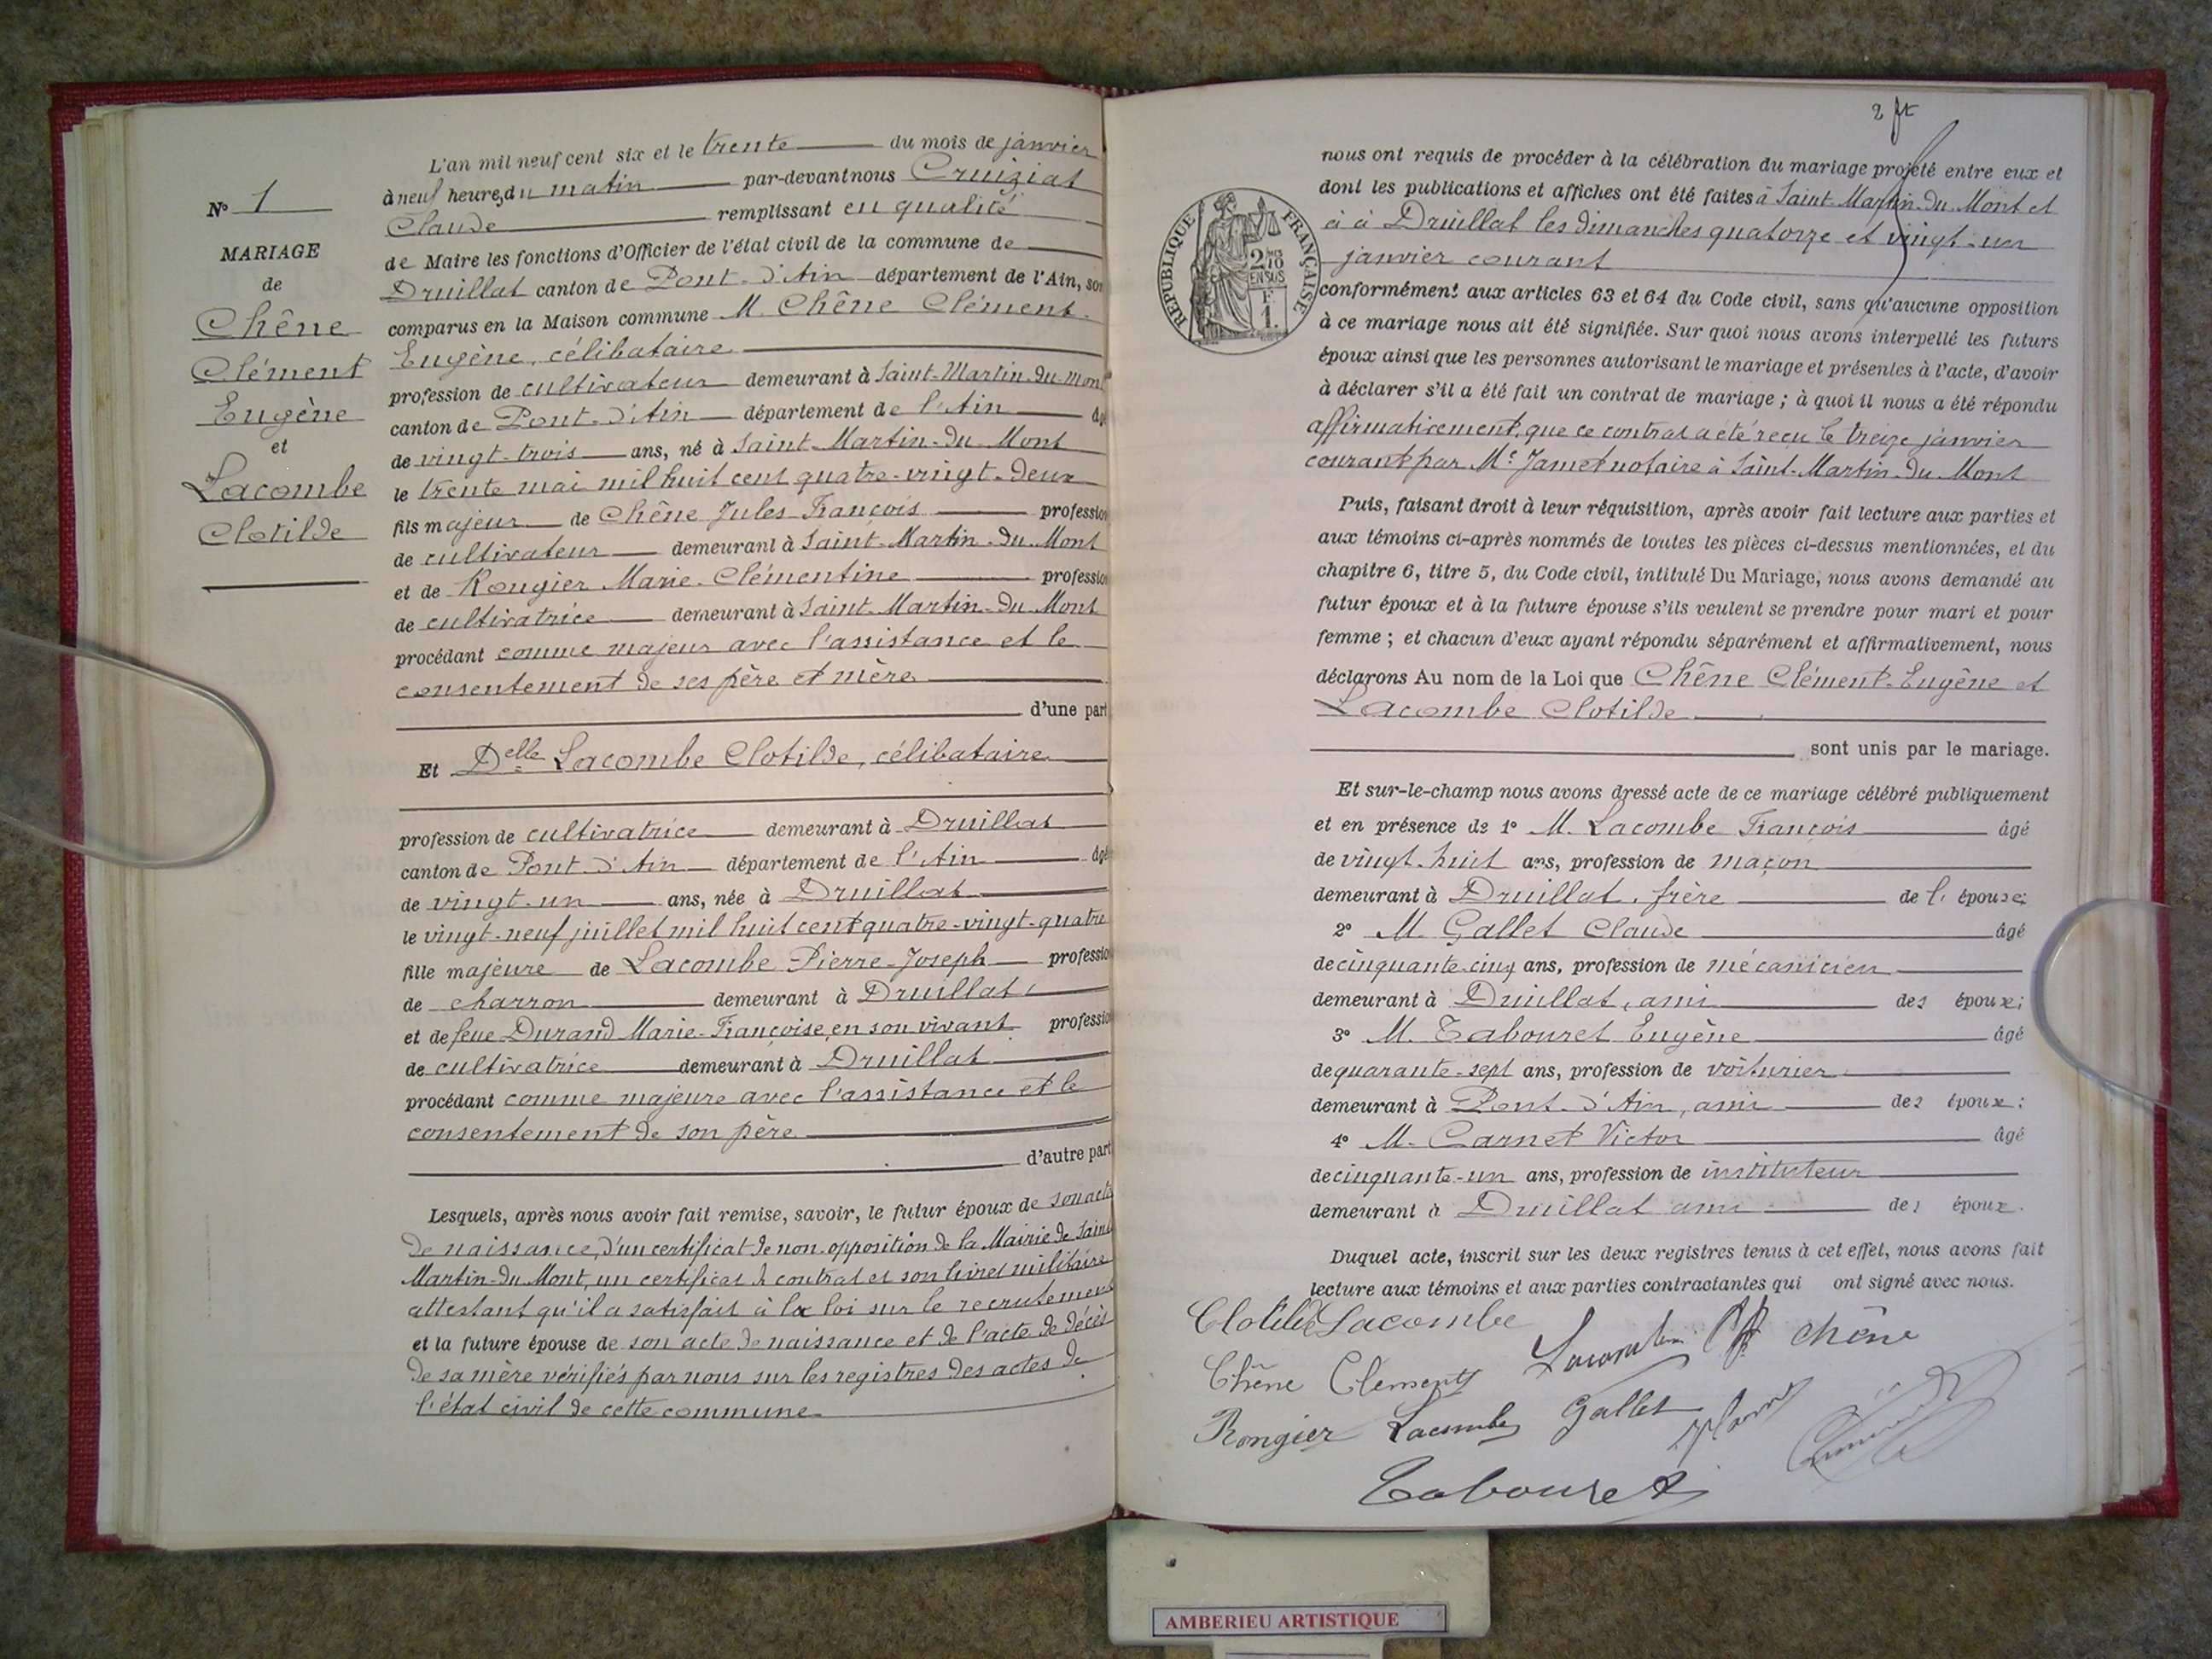 N° 1
MARIAGE
de
Chêne
Clément
Eugène
et
Lacombe
Clotilde
L'an mil neuf cent six et le trente du mois de janvier
à neuf heures du matin par-devant nous Cruiziat
Claude remplissant en qualité
de Maire les fonctions d'Officier de l'état civil de la commune de
Druillat canton de Pont-d'Ain département de l'Ain, son
comparus en la Maison commune M. Chêne Clément-
Eugène, célibataire
profession de cultivateur demeurant à Saint-Martin-du-Mont
canton de Pont-d'Ain département de l'Ain âgé
de vingt-trois ans, né à Saint-Martin-du-Mont
le trente mai mil huit cent quatre-vingt-deux
fils majeur de Chêne Jules-François profession
de cultivateur demeurant à Saint-Martin-du-Mont
et de Rougier Marie-Clémentine profession
de cultivatrice demeurant à Saint-Martin-du-Mont
procédant comme majeur avec l'assistance et le
consentement de ses père et mère
d'une part
Et Delle Lacombe Clotilde, célibataire
profession de cultivatrice demeurant à Druillat
canton de Pont-d'Ain département de l'Ain âgé
de vingt-un ans, née à Druillat
le vingt-neuf juillet mil huit cent quatre-vingt-quatre
fille majeure de Lacombe Pierre-Joseph profession
de charron demeurant à Druillat
et de feue Durand Marie-Françoise, en son vivant profession
de cultivatrice demeurant à Druillat
procédant comme majeure avec l'assistance et le
consentement de son père
d'autre part
Lesquels, après nous avoir fait remise, savoir, le futur époux de son acte
de naissance, d'un certificat de non-opposition de la Mairie de Saint
Martin-du-Mont, un certificat de contrat et son livret militaire
attestant qu'il a satisfait à la loi sur le recrutement
et la future épouse de son acte de naissance et de l'acte de décès
de sa mère vérifiés par nous sur les registres des actes de
l'état civil de cette commune
2 ft
RÉPUBLIQUE FRANÇAISE
2 Mes
10
EN SUS
F.
1.
nous ont requis de procéder à la célébration du mariage projeté entre eux et
dont les publications et affiches ont été faites à Saint-Martin-du-Mont et
à à Druillat les dimanches quatorze et vingt-un
janvier courant
conformément aux articles 63 et 64 du Code civil, sans qu'aucune opposition
à ce mariage nous ait été signifiée. Sur quoi nous avons interpellé les futurs
époux ainsi que les personnes autorisant le mariage et présentes à l'acte, d'avoir
à déclarer s'il a été fait un contrat de mariage ; à quoi il nous a été répondu
affirmativement, que ce contrat a été reçu le treize janvier
courant par Me Jamet notaire à Saint-Martin-du-Mont
Puis, faisant droit à leur réquisition, après avoir fait lecture aux parties et
aux témoins ci-après nommés de toutes les pièces ci-dessus mentionnées, et du
chapitre 6, titre 5, du Code civil, intitulé Du Mariage, nous avons demandé au
futur époux et à la future épouse s'ils veulent se prendre pour mari et pour
femme ; et chacun d'eux ayant répondu séparément et affirmativement, nous
déclarons Au nom de la Loi que Chêne Clément-Eugène et
Lacombe Clotilde
sont unis par le mariage.
Et sur-le-champ nous avons dressé acte de ce mariage célébré publiquement
et en présence de 1° M. Lacombe François âgé
de vingt-huit ans, profession de maçon
demeurant à Druillat, frère de l' épouse;
2° M. Gallet Claude âgé
de cinquante-cinq ans, profession de mécanicien
demeurant à Druillat, ami des époux;
3° M. Tabouret Eugène âgé
de quarante-sept ans, profession de voiturier
demeurant à Pont-d'Ain, ami des époux;
4° M. Carnet Victor âgé
de cinquante-un ans, profession de instituteur
demeurant à Druillat ami des époux.
Duquel acte, inscrit sur les deux registres tenus à cet effet, nous avons fait
lecture aux témoins et aux parties contractantes qui ont signé avec nous.
Clotilde Lacombe
Chêne Clément Lacombe chêne
Rougier Lacombe Gallet
Tabouret
AMBERIEU ARTISTIQUE